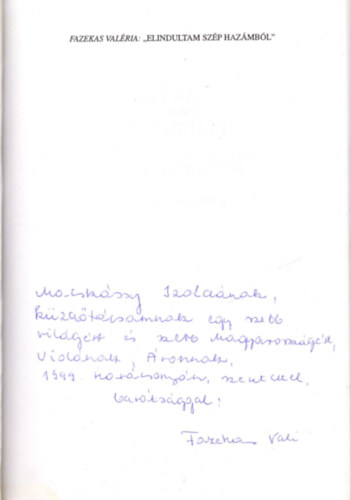 FAZEKAS VALÉRIA: „ELINDULTAM SZÉP HAZÁMBÓL”
Macskássy Izoldának,
küzdőtársamnak egy szebb
világért és szebb Magyarországért,
Vidának, Áronnak,
1999 karácsonyán, szeretettel,
barátsággal:
Fazekas Vali